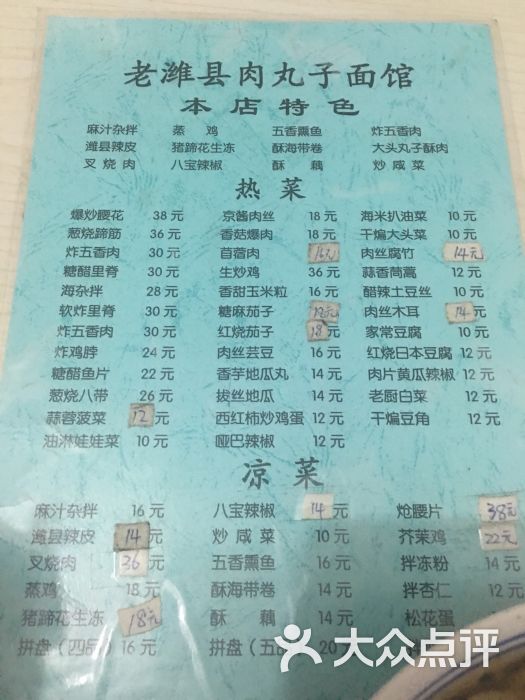 老潍县肉丸子面馆
本店特色
麻汁杂拌 蒸鸡 五香熏鱼 炸五香肉
潍县辣皮 猪蹄花生冻 酥海带卷 大头丸子酥肉
叉烧肉 八宝辣椒 酥藕 炒咸菜
热菜
爆炒腰花 38元 京酱肉丝 18元 海米扒油菜 10元
葱烧蹄筋 36元 香菇爆肉 18元 干煸大头菜 10元
炸五香肉 30元 苜蓿肉 16元 肉丝腐竹 14元
糖醋里脊 30元 生炒鸡 36元 蒜香茼蒿 12元
海杂拌 28元 香甜玉米粒 16元 醋辣土豆丝 10元
软炸里脊 30元 糖麻茄子 12元 肉丝木耳 14元
炸五香肉 30元 红烧茄子 18元 家常豆腐 12元
炸鸡脖 24元 肉丝芸豆 16元 红烧日本豆腐 12元
糖醋鱼片 22元 香芋地瓜丸 14元 肉片黄瓜辣椒 12元
葱烧八带 26元 拔丝地瓜 14元 老厨白菜 12元
蒜蓉菠菜 12元 西红柿炒鸡蛋 12元 干煸豆角 12元
油淋娃娃菜 10元 哑巴辣椒 12元
凉菜
麻汁杂拌 16元 八宝辣椒 14元 炝腰片 38元
潍县辣皮 14元 炒咸菜 10元 芥茉鸡 22元
叉烧肉 36元 五香熏鱼 16元 拌冻粉 14元
蒸鸡 18元 酥海带卷 14元 拌杏仁 12元
猪蹄花生冻 18元 酥藕 14元 松花蛋
拼盘（四品） 16元 拼盘（五品） 20元
大众点评